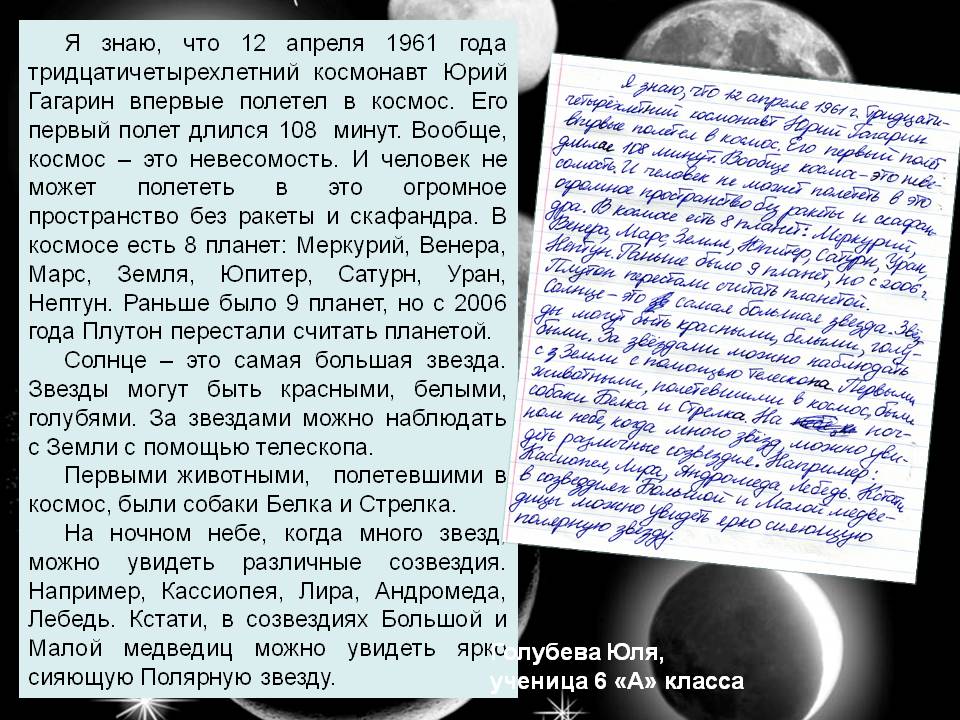 Я знаю, что 12 апреля 1961 года
тридцатичетырехлетний космонавт Юрий
Гагарин впервые полетел в космос. Его
первый полет длился 108 минут. Вообще,
космос – это невесомость. И человек не
может полететь в это огромное
пространство без ракеты и скафандра. В
космосе есть 8 планет: Меркурий, Венера,
Марс, Земля, Юпитер, Сатурн, Уран,
Нептун. Раньше было 9 планет, но с 2006
года Плутон перестали считать планетой.
Солнце – это самая большая звезда.
Звезды могут быть красными, белыми,
голубями. За звездами можно наблюдать
с Земли с помощью телескопа.
Первыми животными, полетевшими в
космос, были собаки Белка и Стрелка.
На ночном небе, когда много звезд,
можно увидеть различные созвездия.
Например, Кассиопея, Лира, Андромеда,
Лебедь. Кстати, в созвездиях Большой и
Малой медведиц можно увидеть ярко
сияющую Полярную звезду.
Я знаю, что 12 апреля 1961 г. тридцати-
четырёхлетний космонавт Юрий Гагарин
впервые полетел в космос. Его первый полёт
длился 108 минут. Вообще космос – это неве-
сомость. И человек не может полететь в это
огромное пространство без ракеты и скафан-
дра. В космосе есть 8 планет: Меркурий,
Венера, Марс, Земля, Юпитер, Сатурн, Уран,
Нептун. Раньше было 9 планет, но с 2006 г.
Плутон перестали считать планетой.
Солнце – это самая большая звезда. Звёз
ды могут быть красными, белыми, голу-
быми. За звёздами можно наблюдать
с Земли с помощью телескопа. Первыми
животными, полетевшими в космос, были
собаки Белка и Стрелка. На ноч-
ном небе, когда много звёзд, можно уви-
деть различные созвездия. Например:
Кассиопея, Лира, Андромеда, Лебедь. Кстати
в созвездиях Большой и Малой медве-
дицы можно увидеть ярко сияющую
полярную звезду.
Голубева Юля,
ученица 6 «А» класса